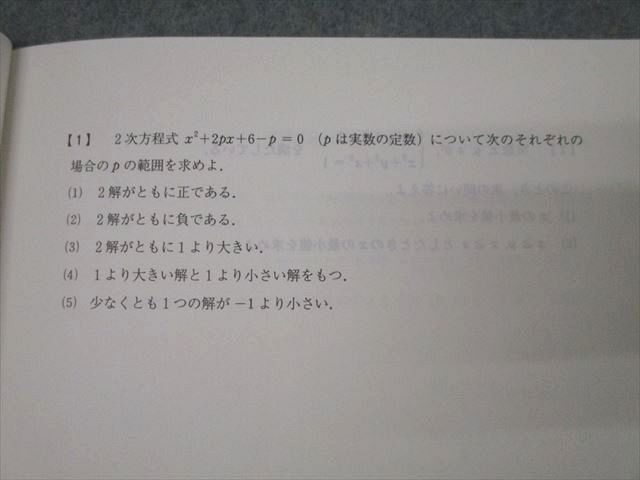 【1】 2次方程式 x²+2px+6−p=0 (pは実数の定数)について次のそれぞれの
場合のpの範囲を求めよ.
(1) 2解がともに正である.
(2) 2解がともに負である.
(3) 2解がともに1より大きい.
(4) 1より大きい解と1より小さい解をもつ.
(5) 少なくとも1つの解が −1より小さい.